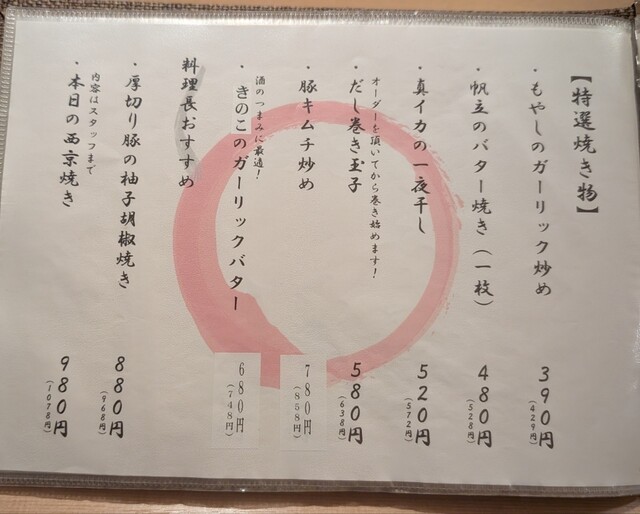 【特選焼き物】
・もやしのガーリック炒め 390円(429円)
・帆立のバター焼き(一枚) 480円(528円)
・真イカの一夜干し 520円(572円)
オーダーを頂いてから巻き始めます!
・だし巻き玉子 580円(638円)
・豚キムチ炒め 780円(858円)
酒のつまみに最適!
・きのこのガーリックバター 680円(748円)
料理長おすすめ
・厚切り豚の柚子胡椒焼き 880円(968円)
内容はスタッフまで
・本日の西京焼き 980円(1078円)